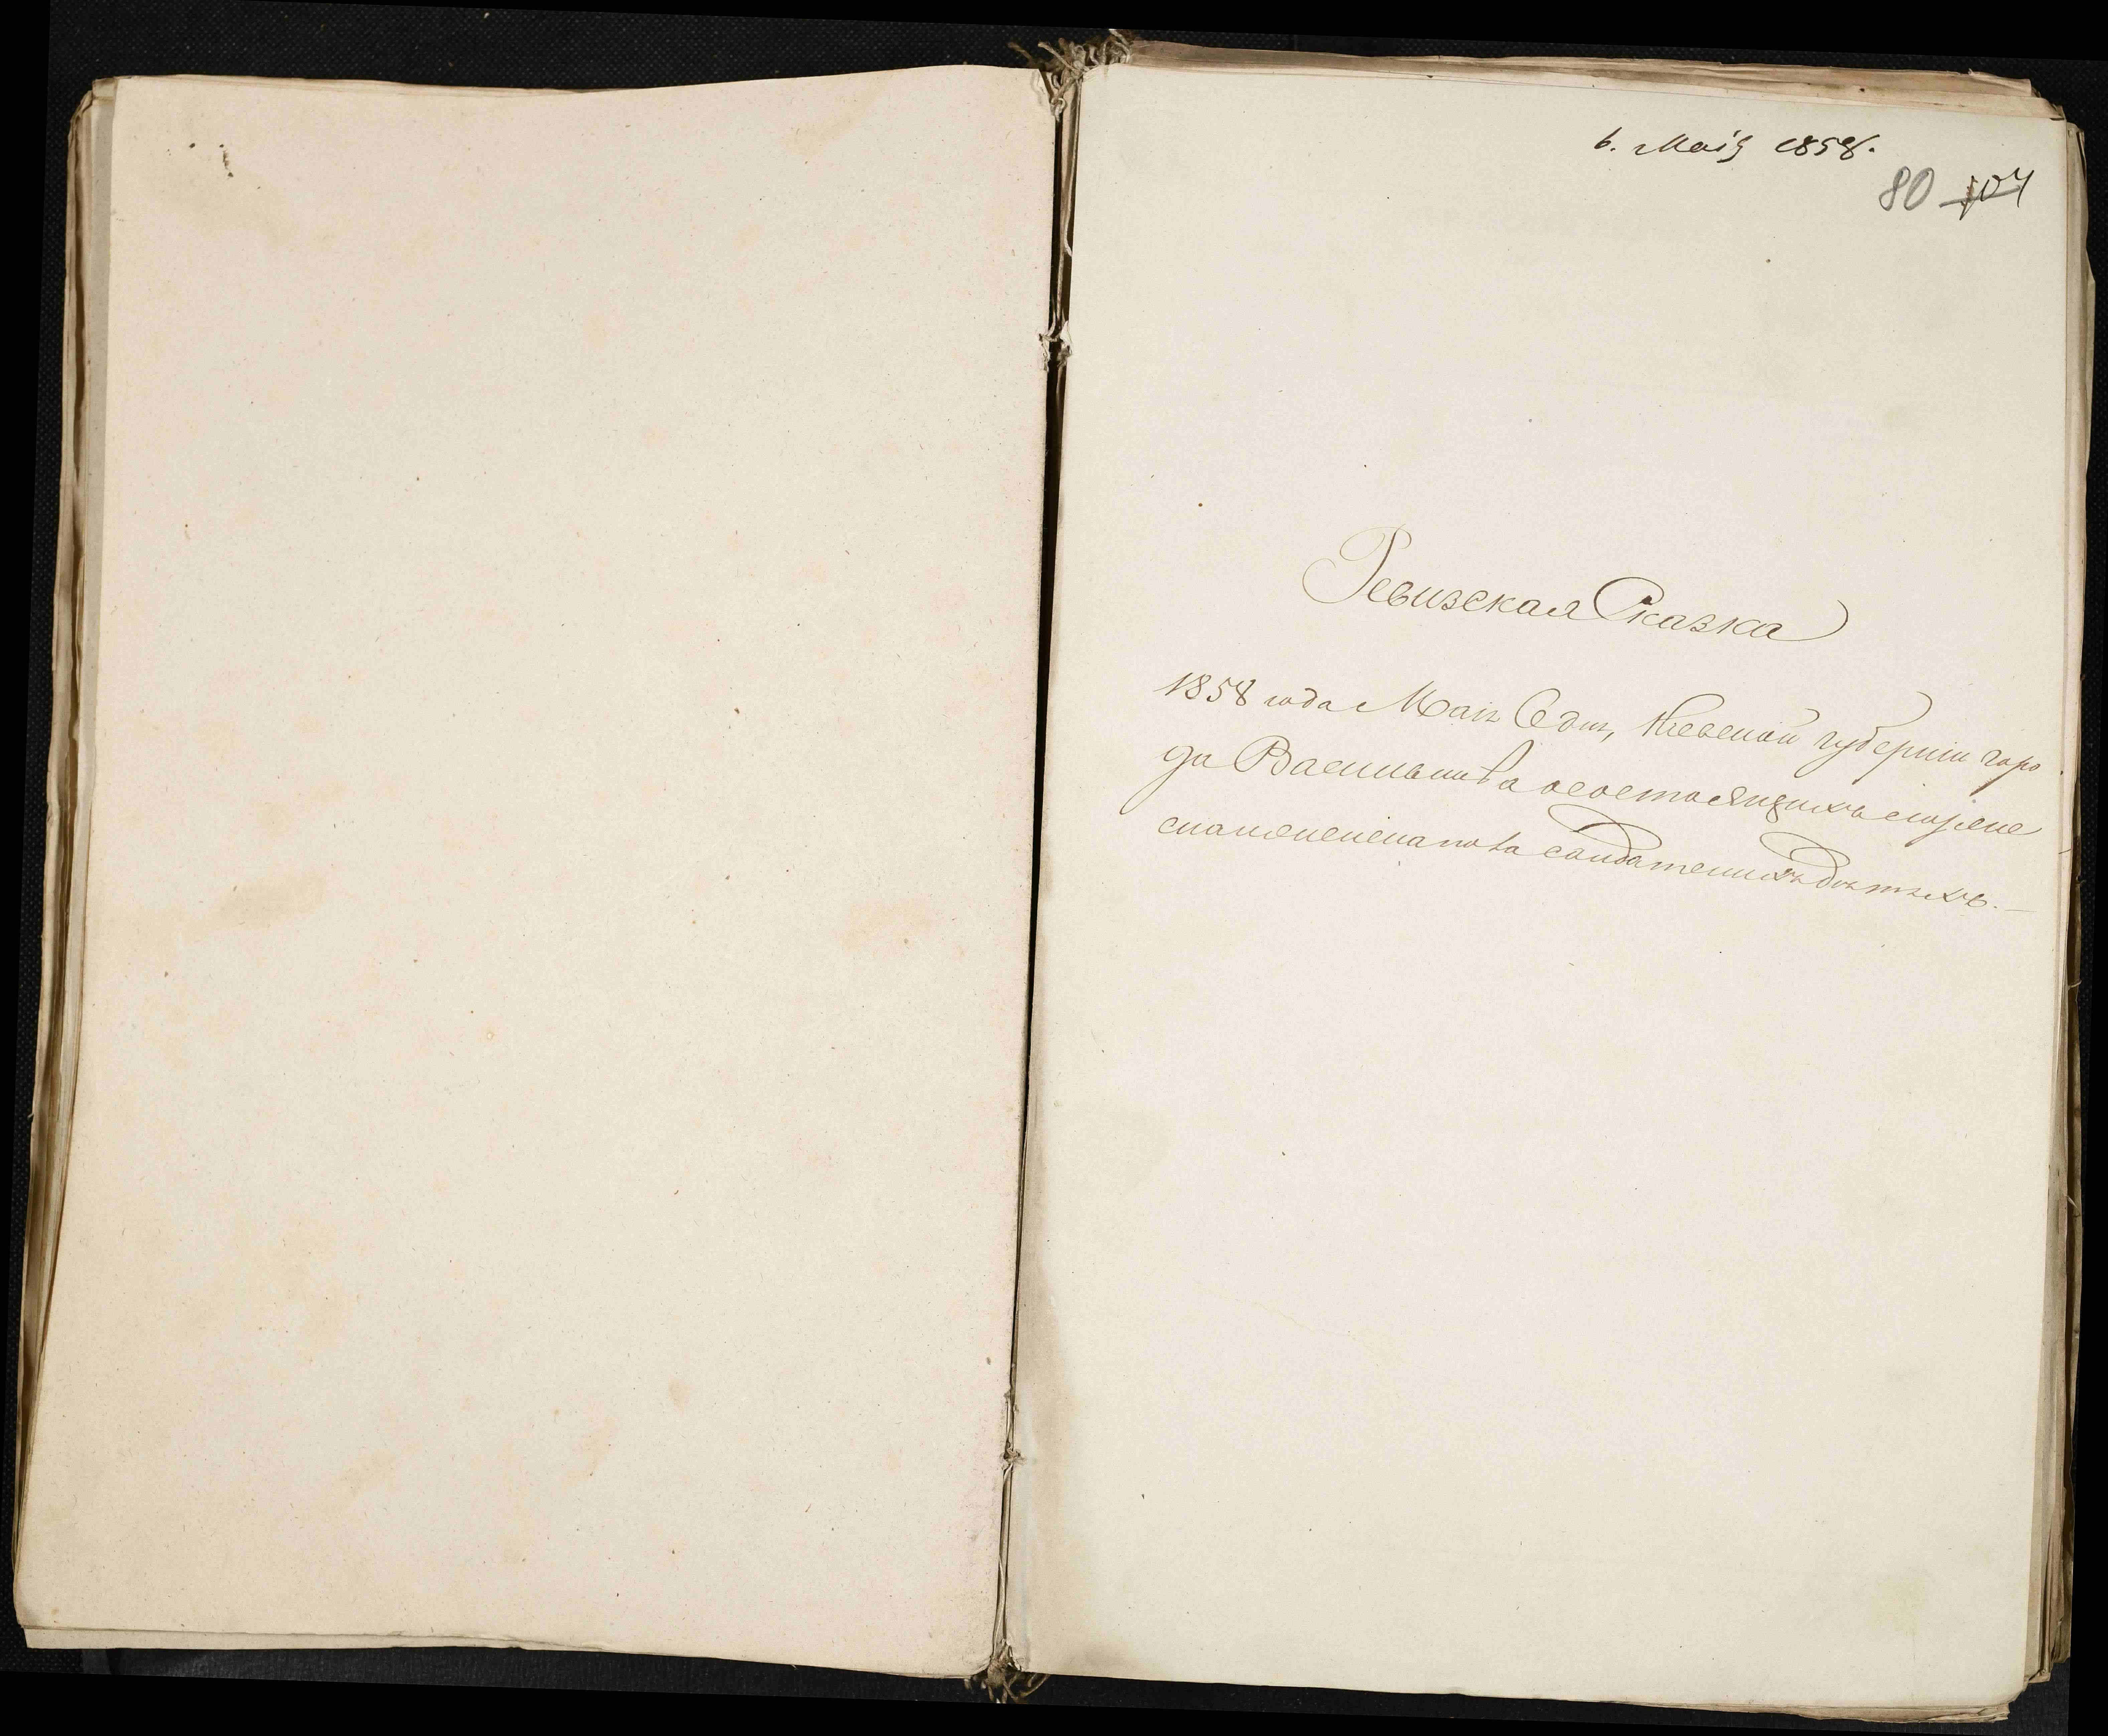 6. Маія 1858.
80 104
Ревизская Сказка
1858 года Маія дня, Кіевской губерніи горо
да Василькова о состоящихъ
солдатскихъ дѣтяхъ.